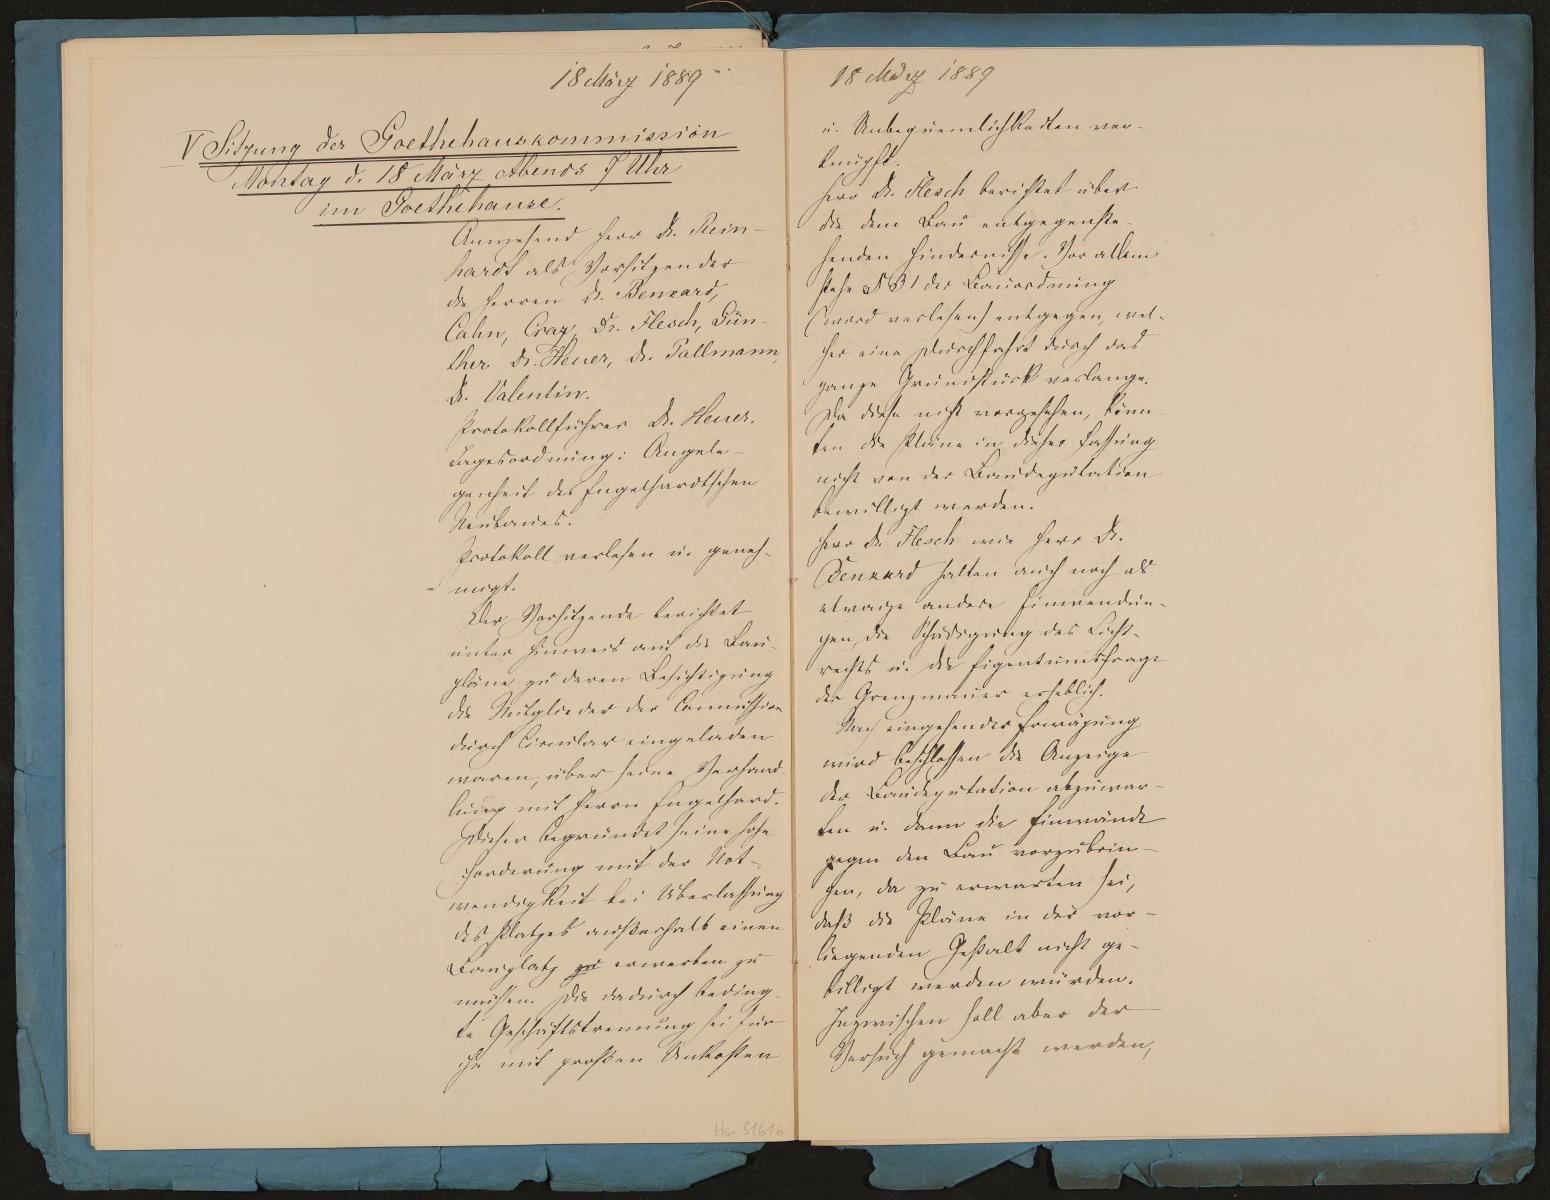 18 März 1889
V Sitzung der Goethehauskommission
Montag d. 18 März Abends 7 Uhr
im Goethehause.
Anwesend Herr Dr. Rein-
hardt als Vorsitzender
die Herren Dr. Benkard,
Cahn, Cray, Dr. Flesch, Gün-
ther Dr. Heuer, Dr. Pallmann,
Dr. Valentin.
Protokollführer Dr. Heuer.
Tagesordnung: Angele-
genheit des Engelhardtschen
Neubaues.
Protokoll verlesen u. geneh-
migt.
Der Vorsitzende berichtet
unter Hinweis auf die Bau-
pläne zu deren Besichtigung
die Mitglieder der Commission
durch Circular eingeladen
waren, über seine Verhand-
lung mit Herrn Engelhard.
Dieser begründet seine hohe
Forderung mit der Not-
wendigkeit bei Überlassung
des Platzes außerhalb einen
Bauplatz zu erwerben zu
müssen. Die dadurch beding-
te Geschäftstrennung sei für
ihn mit großen Unkosten
Hs-31616
18 März 1889
u. Unbequemlichkeiten ver-
knüpft.
Herr Dr. Flesch berichtet über
die dem Bau entgegenste-
henden Hindernisse. Vor allem
stehe § 31 der Bauordnung
(ward verlesen) entgegen, wel-
cher eine Durchfahrt durch das
ganze Grundstück verlange.
Da diese nicht vorgesehen, könn-
ten die Pläne in dieser Fassung
nicht von der Baudeputation
bewilligt werden.
Herr Dr. Flesch wie Herr Dr.
Benkard halten auch noch als
etwaige andere Einwendun-
gen, die Schädigung des Licht-
rechts u. die Eigentumsfrage
der Grenzmauer erheblich.
Nach eingehender Erwägung
wird beschlossen die Anzeige
der Baudeputation abzuwar-
ten u. dann die Einwände
gegen den Bau vorzubrin-
gen, da zu erwarten sei,
daß die Pläne in der vor-
liegenden Gestalt nicht ge-
billigt werden würden.
Inzwischen soll aber der
Versuch gemacht werden,